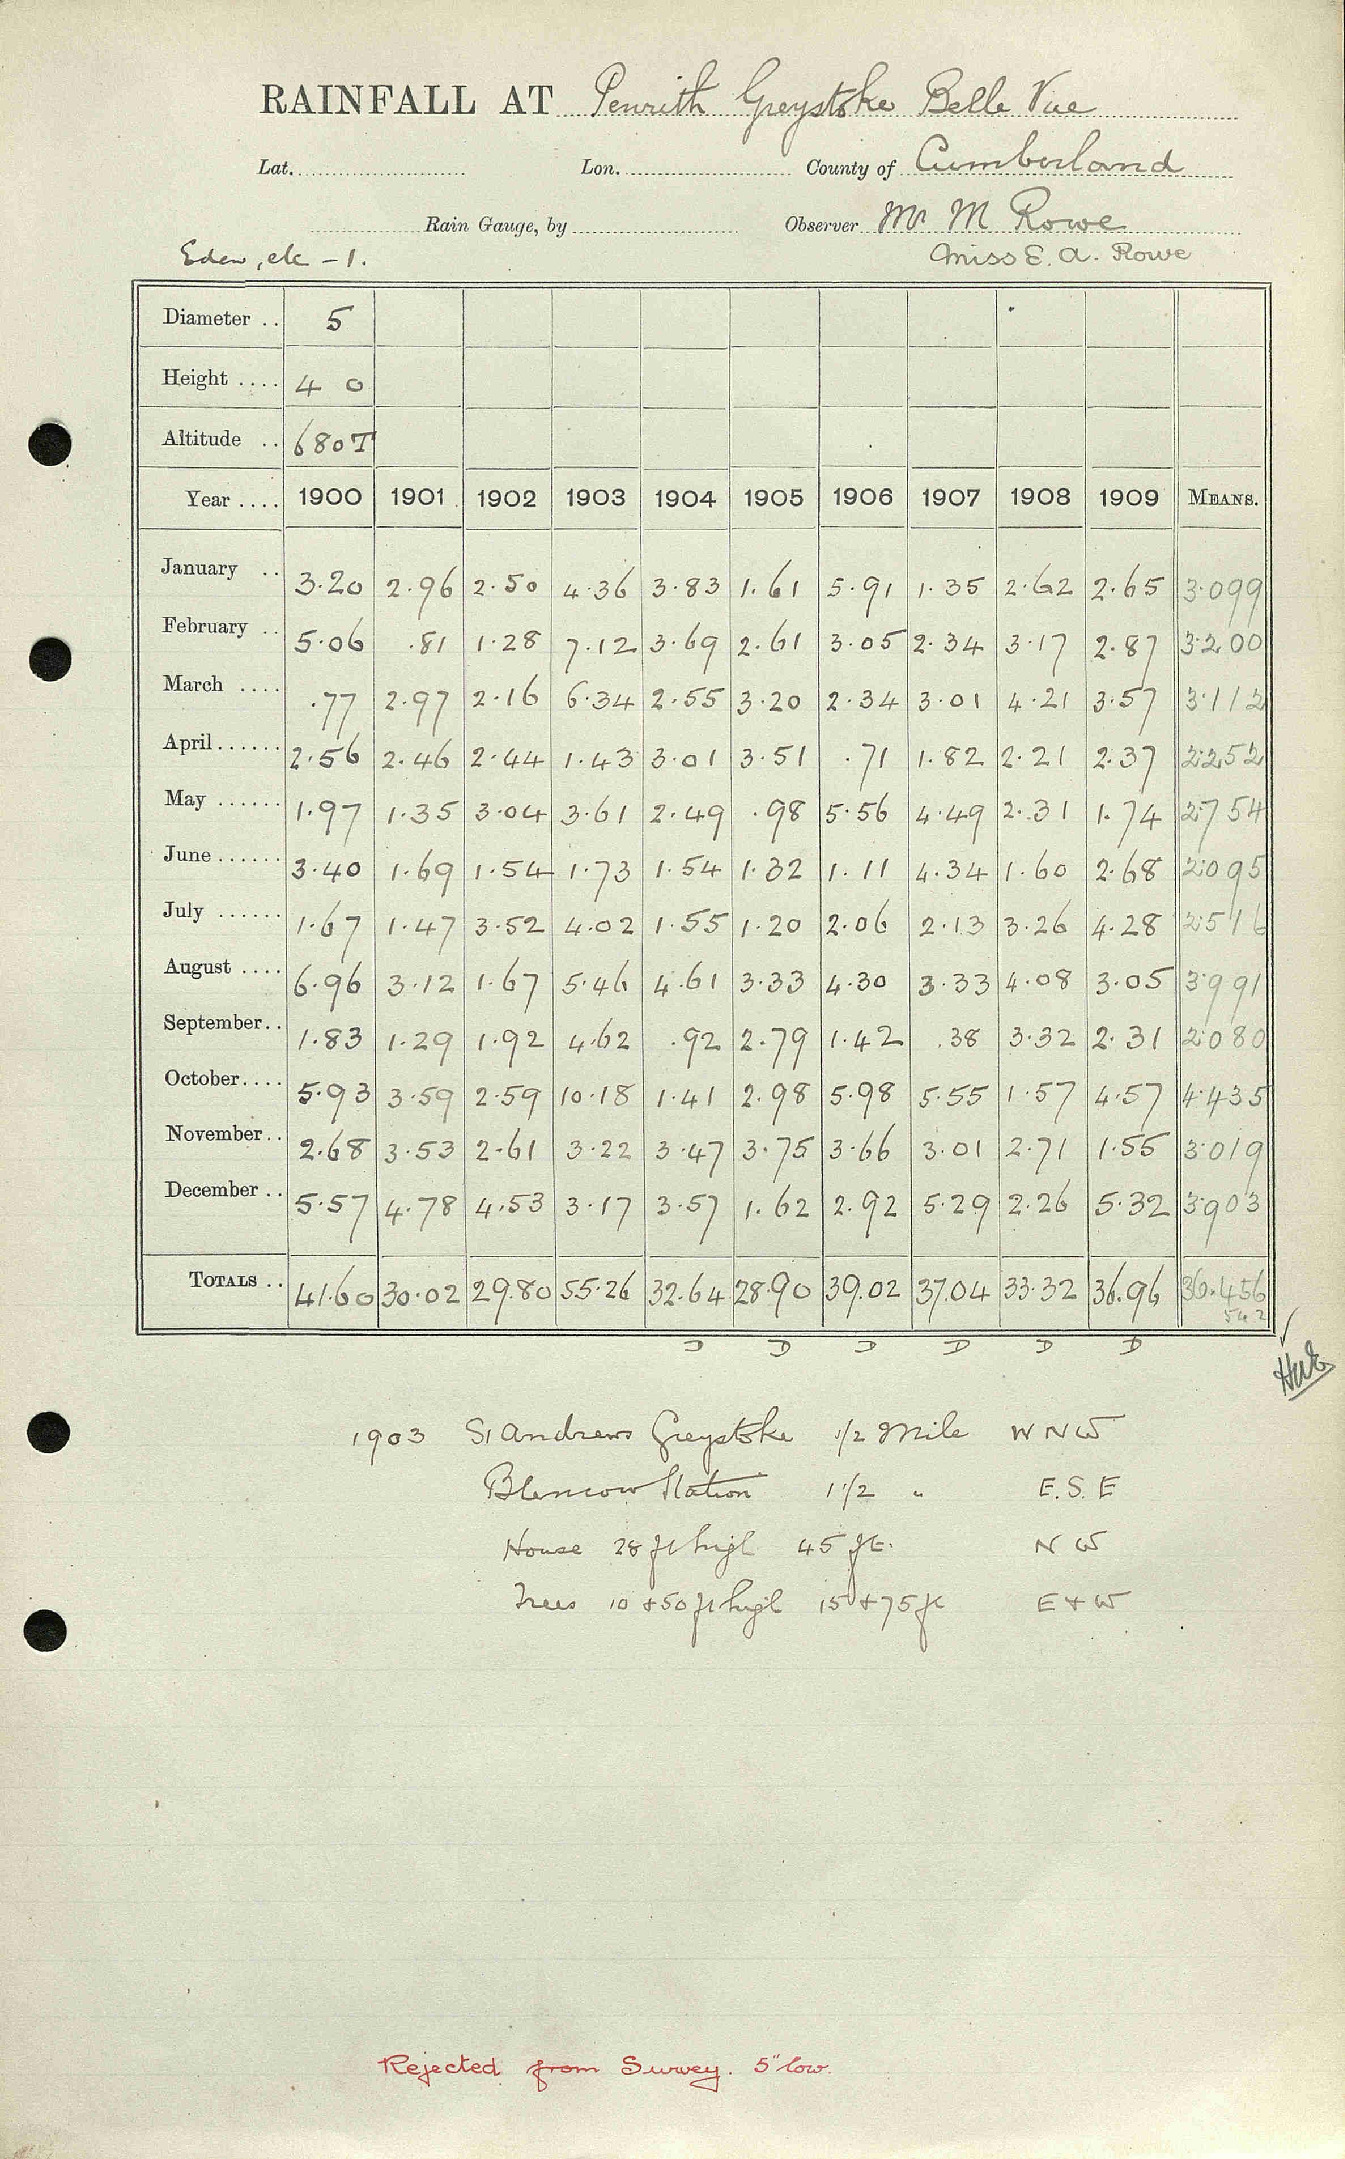 RAINFALL AT Penrith Greystoke Belle Vue
Lat. Lon. County of Cumberland
Rain Gauge, by Observer Mr M Rowe
Eden, etc - 1. Miss E. A. Rowe
Diameter .. 5
Height .... 4 0
Altitude .. 680T
Year .... 1900 1901 1902 1903 1904 1905 1906 1907 1908 1909 MEANS.
January .. 3.20 2.96 2.50 4.36 3.83 1.61 5.91 1.35 2.62 2.65 3.099
February .. 5.06 .81 1.28 7.12 3.69 2.61 3.05 2.34 3.17 2.87 3.200
March .... .77 2.97 2.16 6.34 2.55 3.20 2.34 3.01 4.21 3.57 3.112
April...... 2.56 2.46 2.44 1.43 3.01 3.51 .71 1.82 2.21 2.37 2.252
May ...... 1.97 1.35 3.04 3.61 2.49 .98 5.56 4.49 2.31 1.74 2.754
June...... 3.40 1.69 1.54 1.73 1.54 1.32 1.11 4.34 1.60 2.68 2.095
July ...... 1.67 1.47 3.52 4.02 1.55 1.20 2.06 2.13 3.26 4.28 2.516
August .... 6.96 3.12 1.67 5.46 4.61 3.33 4.30 3.33 4.08 3.05 3.991
September.. 1.83 1.29 1.92 4.62 .92 2.79 1.42 .38 3.32 2.31 2.080
October.... 5.93 3.59 2.59 10.18 1.41 2.98 5.98 5.55 1.57 4.57 4.435
November.. 2.68 3.53 2.61 3.22 3.47 3.75 3.66 3.01 2.71 1.55 3.019
December .. 5.57 4.78 4.53 3.17 3.57 1.62 2.92 5.29 2.26 5.32 3.903
TOTALS .. 41.60 30.02 29.80 55.26 32.64 28.90 39.02 37.04 33.32 36.96 36.456
542
D D D D D D
1903 St Andrews Greystoke 1/2 Mile W N W
Blencow Station 1 1/2 " E. S. E
House 28 ft high 45 ft. N W
Trees 10 + 50 ft high 15 + 75 ft E + W
Rejected from Survey. 5" low.